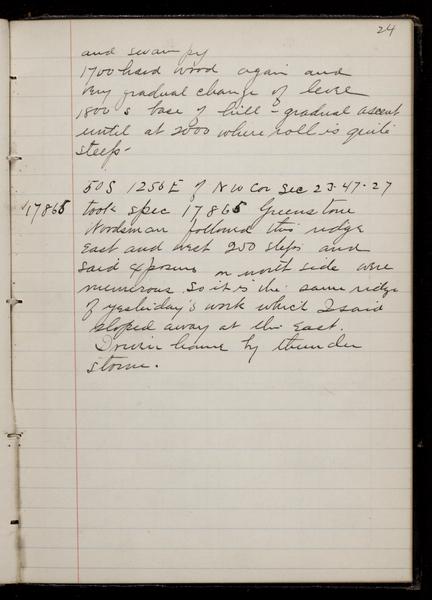 24
and swampy
1700 hard wood again and
very gradual change of level
1800 s base of hill - gradual ascent
until at 2000 where roll is quite
steep -
50 S 1250 E of N W Cor Sec 23-47-27
17865 took spec 17865 Greenstone
Woodsman followed this ridge
East and west 200 steps and
said exposures on north side were
numerous so it is the same ridge
of yesterday's work which I said
sloped away at the East.
Driven home by thunder
storm.